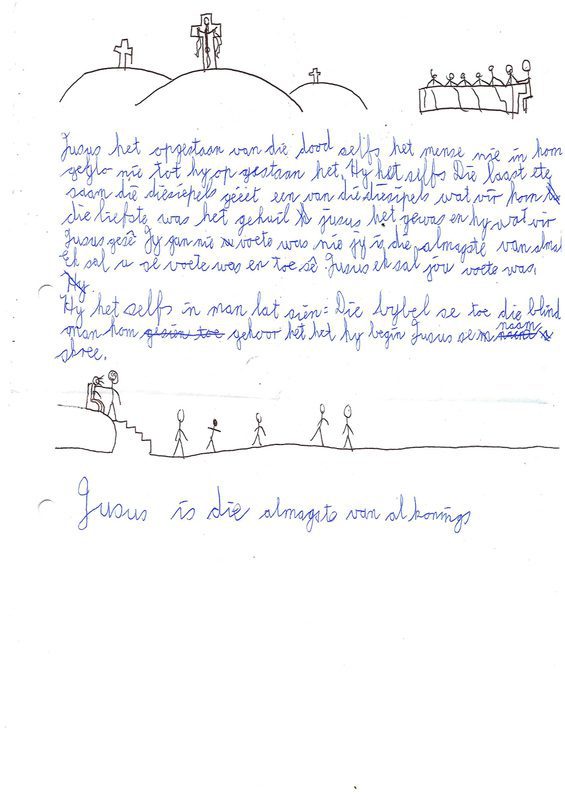 Jusus het opgestaan van die dood selfs het mense nie in hom
geglo nie tot hy op gestaan het. Hy het selfs Die laast ete
saam die diesiepels geëet een van die diesipels wat vir hom
die liefste was het gehuil jusus het gewas en hy wat vir
Jusus gesê Jy gan nie voete was nie jy is die almagste van almal
Ek sal u se voete was en toe sê Jusus ek sal jou voete was.
Hy
Hy het selfs in man lat sien: Die bybel se toe die blind
man hom gesien toe gehoor het het hy begin Jusus se naam
skree.
Jusus is die almagste van al konings